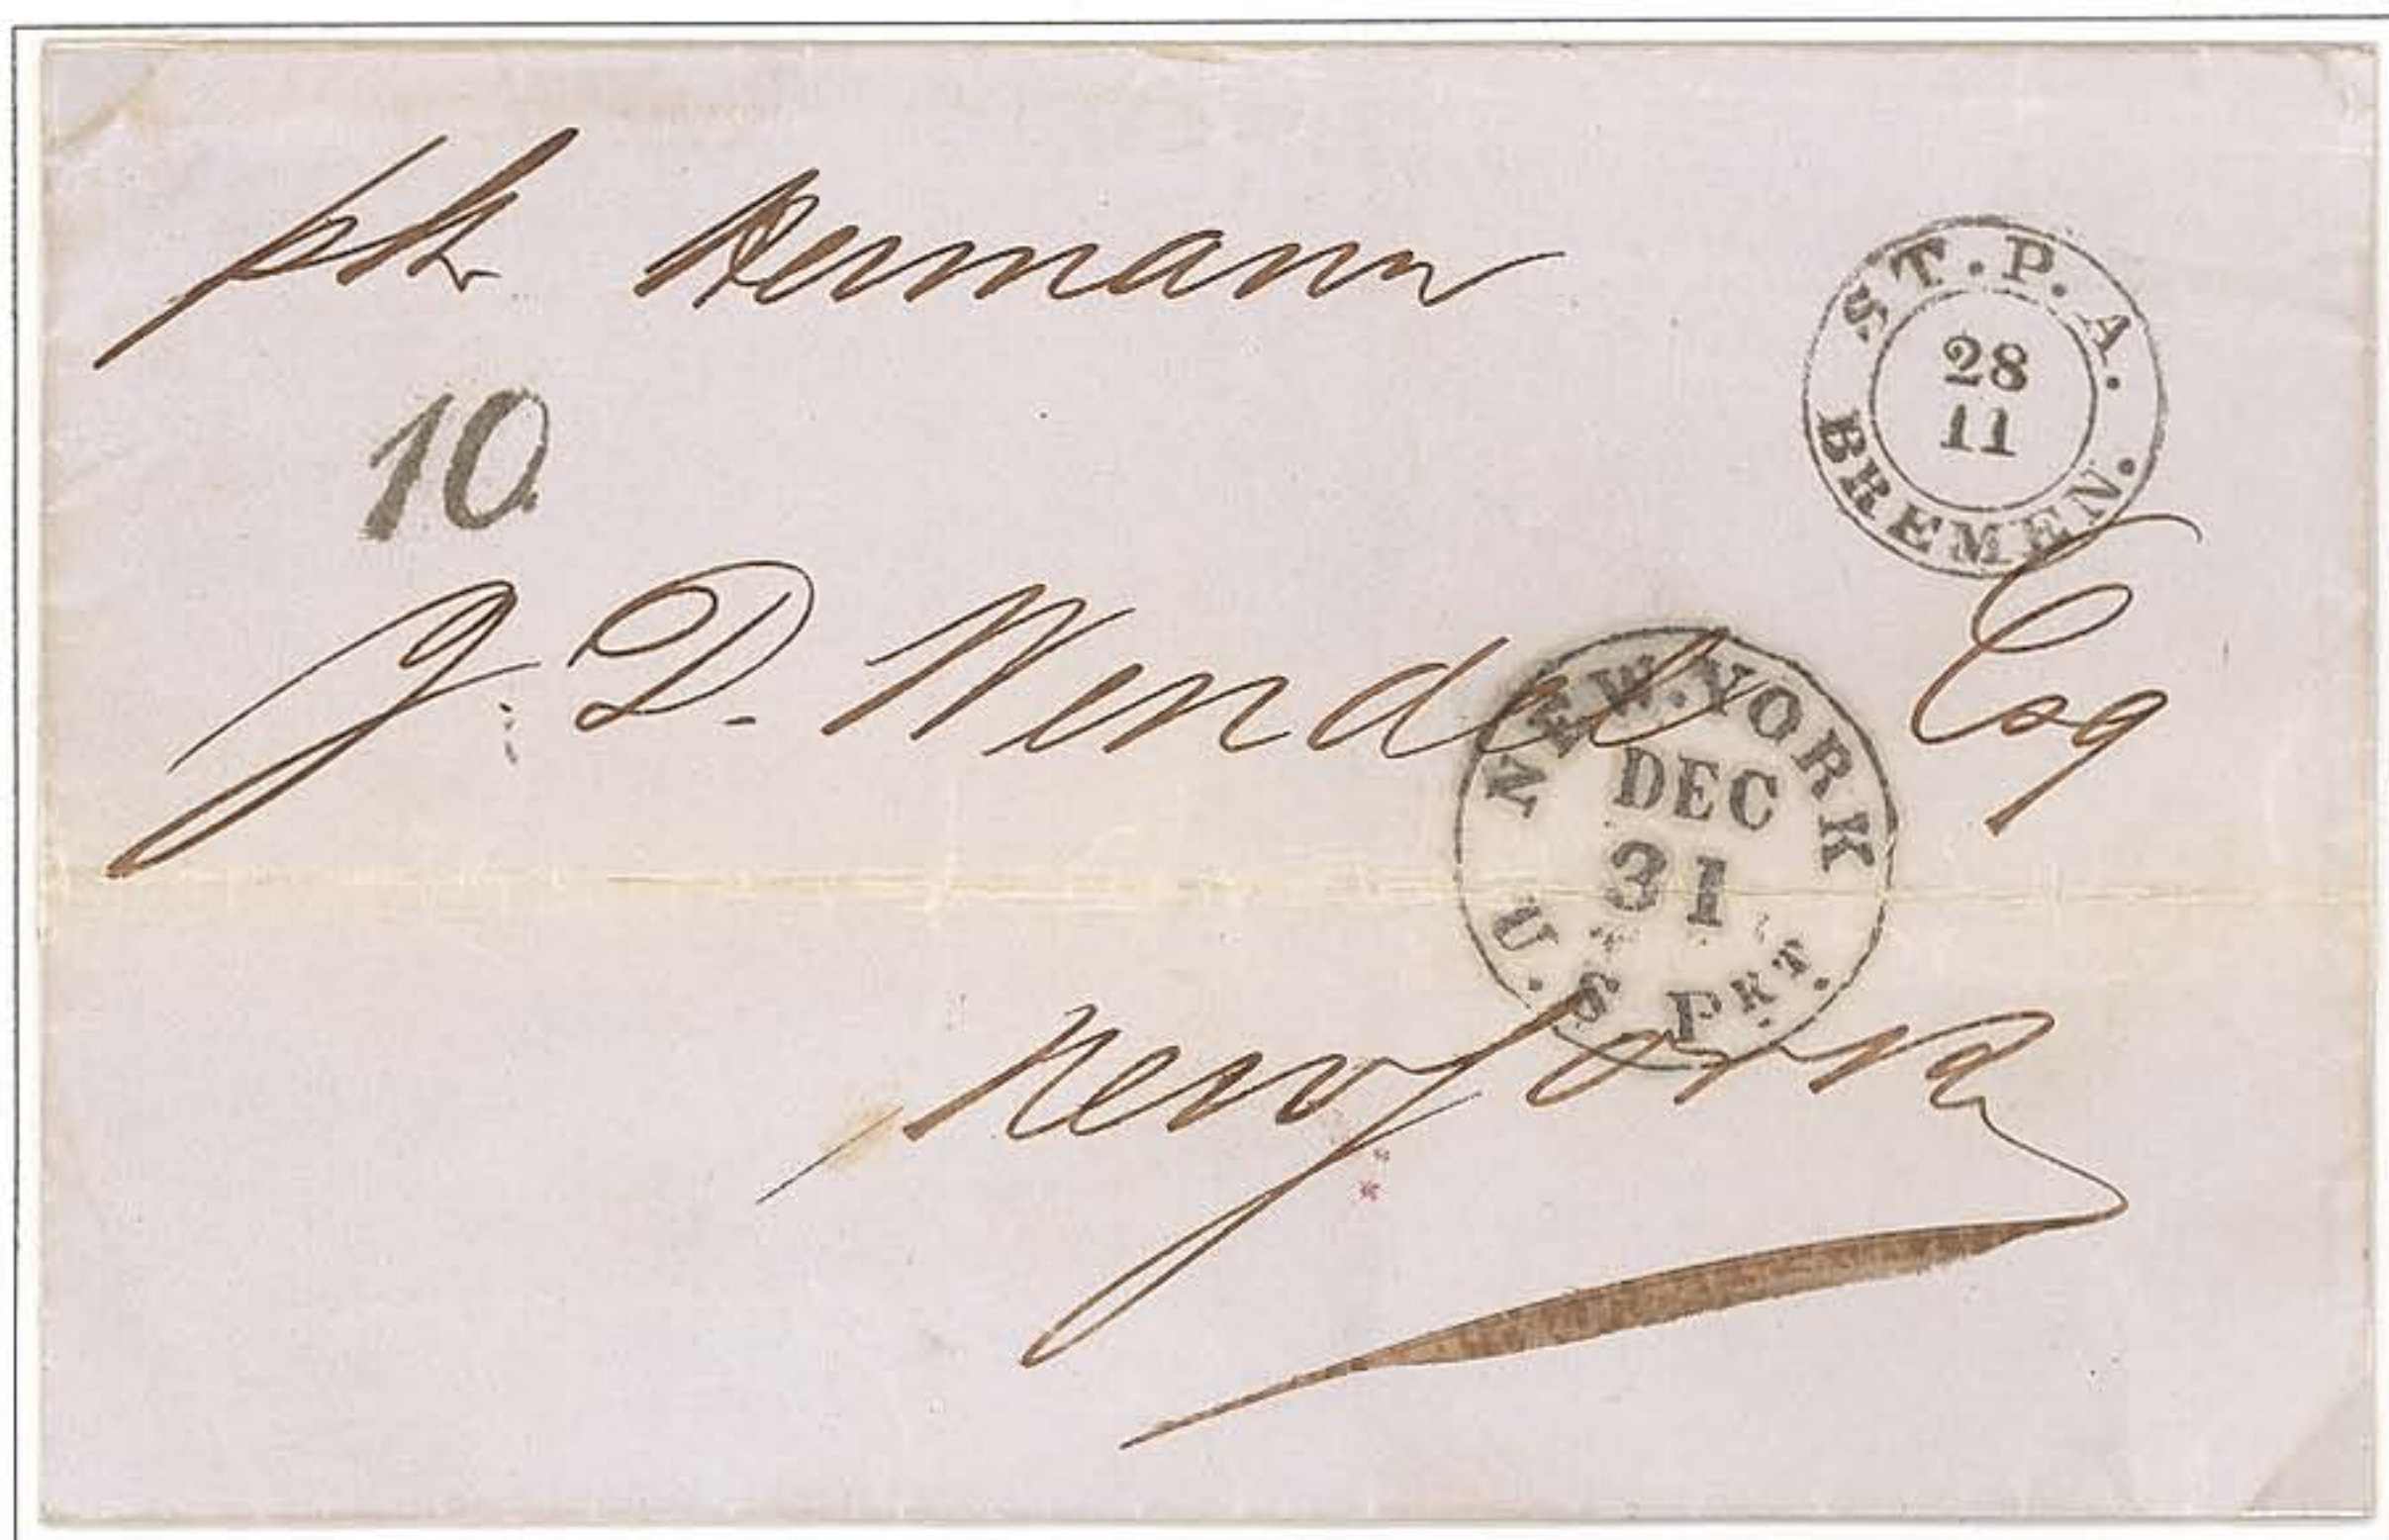 per Hermann
ST. P. A.
28
11
BREMEN.
10
J. D. Wendel Esq
NEW.YORK
DEC
31
U.S PKT.
New York